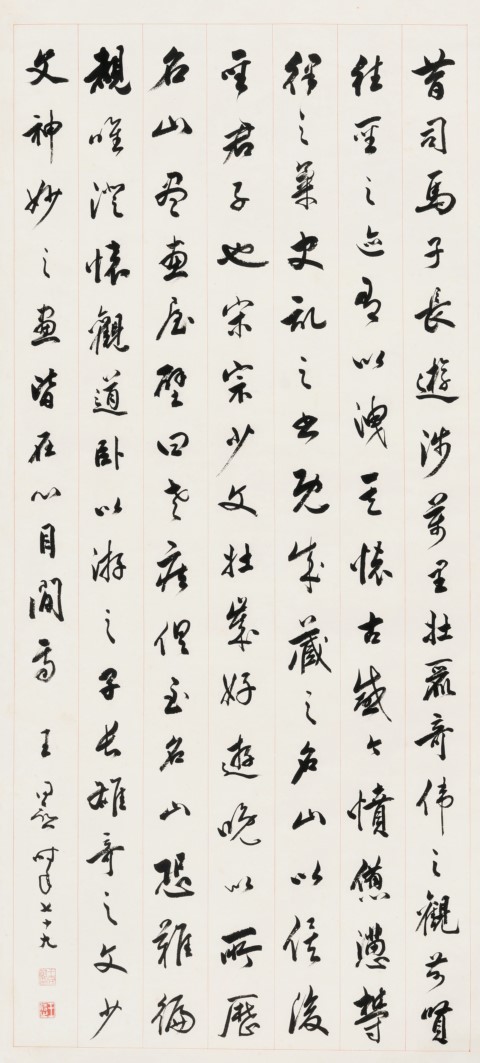 昔司馬子長遊涉萬里壯麗奇偉之觀前賢
往聖之迹有以洩其懷古感今憤懣
之史乱之书既成藏之名山以俟後
聖君子也宋宗少文壯歲好遊晚以所歷
名山盡畫屋壁曰老疾俱至名山恐難徧
覩唯澄懷觀道臥以游之子長雄奇之文少
文神妙之畫皆在心目間焉 王 時年七十九